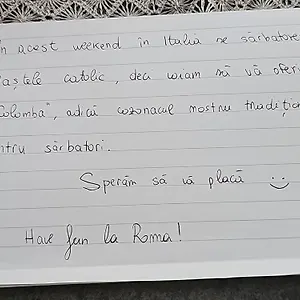 în acest weekend în Italia se sărbătore
aștele catolic, deci voiam să vă oferi
Colomba", adică cozonacul nostru tradiție
ntru sărbatori.
Sperăm să vă placă :)
Have fun la Roma!